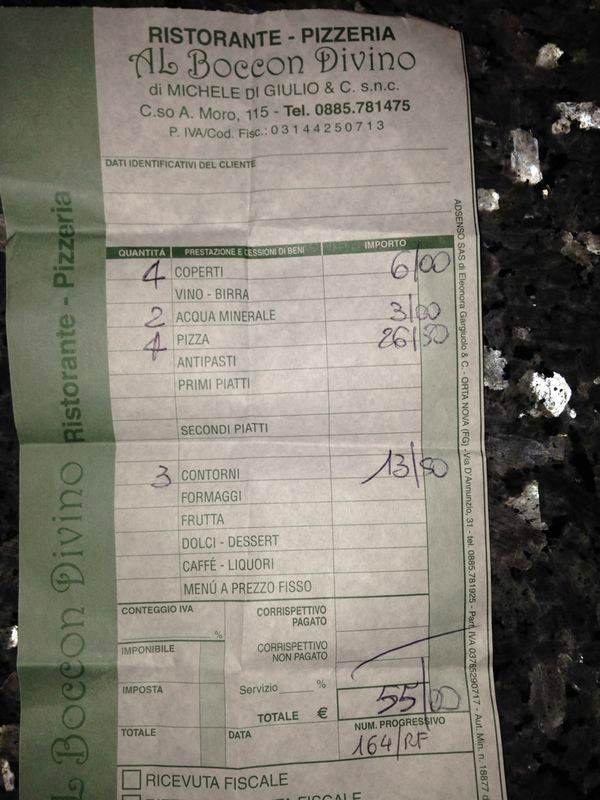 RISTORANTE - PIZZERIA
AL Boccon Divino
di MICHELE DI GIULIO & C. s.n.c.
C.so A. Moro, 115 - Tel. 0885.781475
P. IVA/Cod. Fisc.: 03144250713
DATI IDENTIFICATIVI DEL CLIENTE
QUANTITÀ PRESTAZIONE E CESSIONI DI BENI IMPORTO
4 COPERTI 6/00
VINO - BIRRA
2 ACQUA MINERALE 3/00
4 PIZZA 26/50
ANTIPASTI
PRIMI PIATTI
SECONDI PIATTI
3 CONTORNI 13/50
FORMAGGI
FRUTTA
DOLCI - DESSERT
CAFFÉ - LIQUORI
MENÚ A PREZZO FISSO
CONTEGGIO IVA
%
CORRISPETTIVO
PAGATO
IMPONIBILE
CORRISPETTIVO
NON PAGATO
IMPOSTA
Servizio %
TOTALE € 55/00
TOTALE
DATA
NUM. PROGRESSIVO
164/RF
RICEVUTA FISCALE
FISCALE
L Boccon Divino Ristorante - Pizzeria
ADSENSO SAS di Eleonora Gargiuolo & C. - ORTA NOVA (FG) - Via D'Annunzio, 31 - tel. 0885.781925 - Part. IVA 03785290717 - Aut. Min. n. 18877